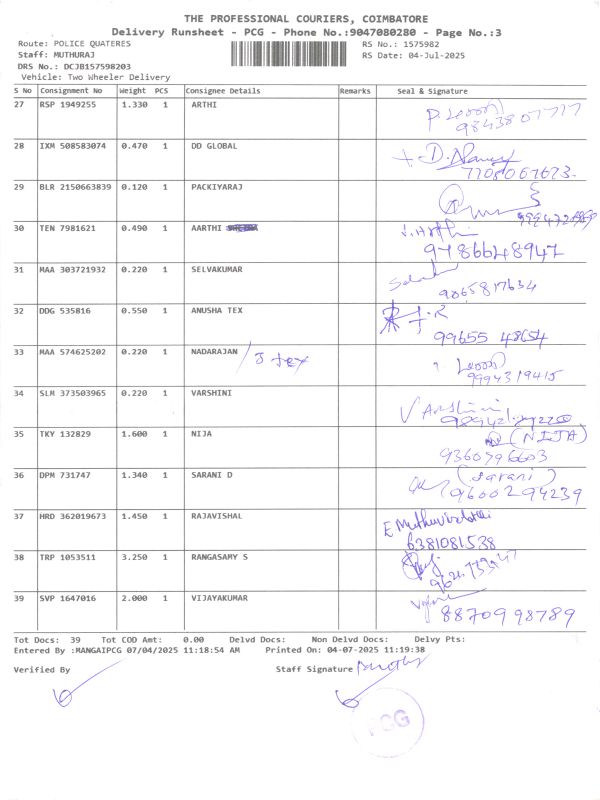 THE PROFESSIONAL COURIERS, COIMBATORE
Delivery Runsheet - PCG - Phone No.:9047080280 - Page No.:3
Route: POLICE QUATERES
Staff: MUTHURAJ
DRS No.: DCJB157598203
Vehicle: Two Wheeler Delivery
RS No.: 1575982
RS Date: 04-Jul-2025
S No Consignment No Weight PCS Consignee Details Remarks Seal & Signature
27 RSP 1949255 1.330 1 ARTHI
28 IXM 508583074 0.470 1 DD GLOBAL
7708067673.
29 BLR 2150663839 0.120 1 PACKIYARAJ
30 TEN 7981621 0.490 1 AARTHI
9786648947
31 MAA 303721932 0.220 1 SELVAKUMAR
9865817634
32 DDG 535816 0.550 1 ANUSHA TEX
99655 48654
33 MAA 574625202 0.220 1 NADARAJAN / J tex
9994319415
34 SLM 373503965 0.220 1 VARSHINI
Varshini
35 TKY 132829 1.600 1 NIJA
(NIJA)
9360796603
36 DPM 731747 1.340 1 SARANI D
(Sarani)
9600294239
37 HRD 362019673 1.450 1 RAJAVISHAL
6381081538
38 TRP 1053511 3.250 1 RANGASAMY S
39 SVP 1647016 2.000 1 VIJAYAKUMAR
8870998789
Tot Docs: 39 Tot COD Amt: 0.00 Delvd Docs: Non Delvd Docs: Delvy Pts:
Entered By :MANGAIPCG 07/04/2025 11:18:54 AM Printed On: 04-07-2025 11:19:38
Verified By Staff Signature
PCG